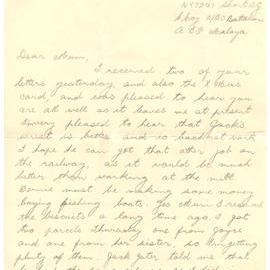 Short S.G
A.I.F Malaya
Dear Mum,
I received two of your
letters yesterday and also the Xmas
card, and was pleased to hear you
are all well as it leaves me at present
pleased to hear that Jack's
wrist is better and is back at work
I hope he can get that other job on
the railway, as it would be much
better then working at the mill
must be making some money
buying fishing boats. Yes Mum I received
the biscuits a long time ago. I got
two parcels Thursday one from Joyce
and one from her sister, so I'm getting
plenty of them. Jack told me that